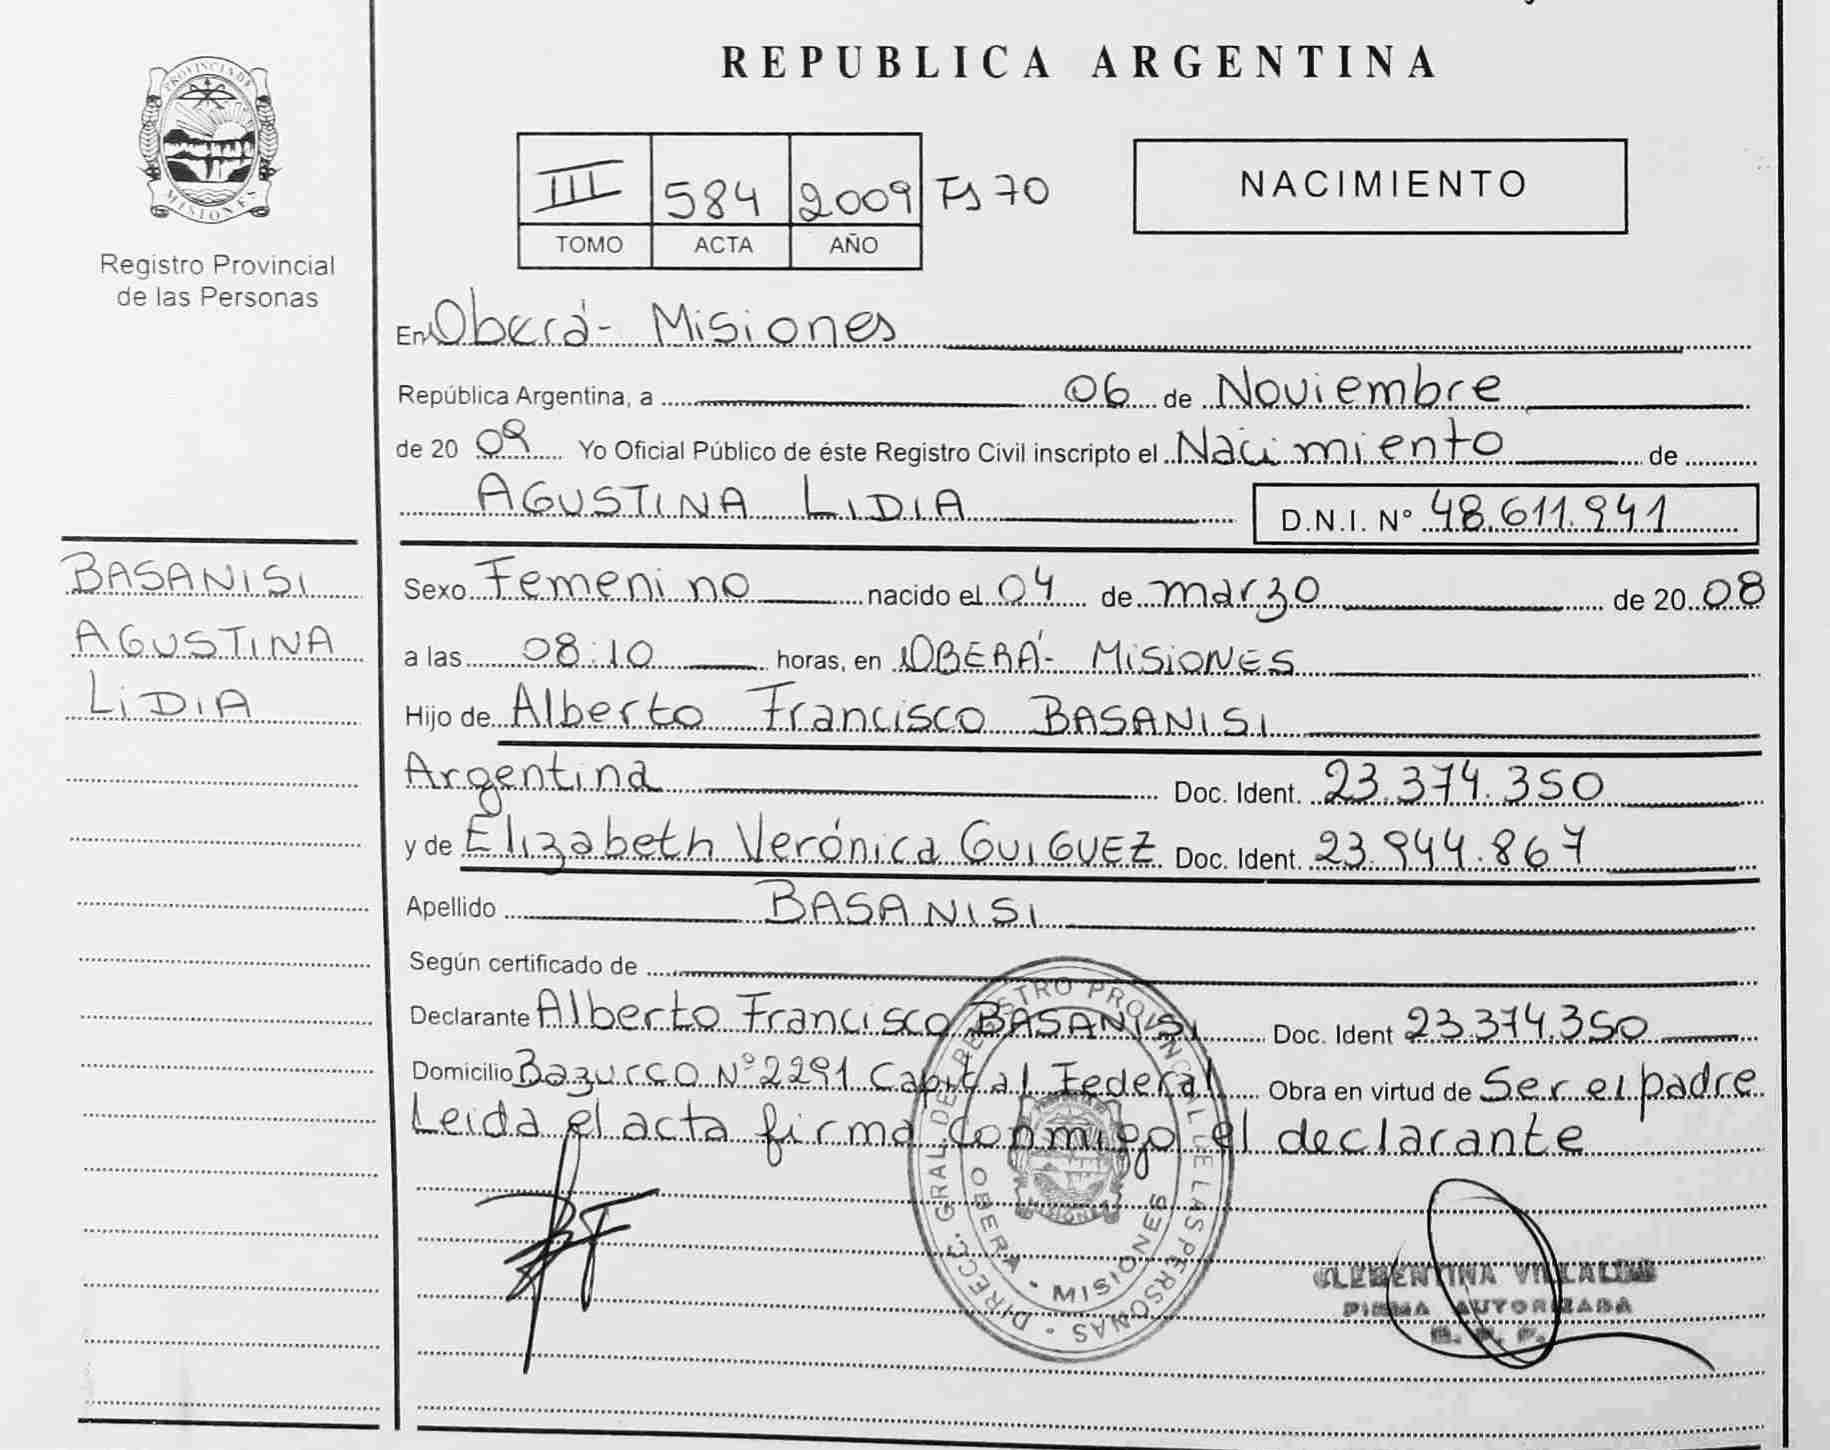 REPUBLICA ARGENTINA
PROVINCIA DE
MISIONES
Registro Provincial
de las Personas
III 584 2009 Fs 70
TOMO ACTA AÑO
NACIMIENTO
En Oberá - Misiones
República Argentina, a 06 de Noviembre
de 20 09 Yo Oficial Público de éste Registro Civil inscripto el Nacimiento de
AGUSTINA LIDIA D.N.I. Nº 48.611.941
BASANISI
AGUSTINA
LIDIA
Sexo Femenino nacido el 04 de marzo de 20 08
a las 08:10 horas, en OBERÁ - MISIONES
Hijo de Alberto Francisco BASANISI
Argentina Doc. Ident. 23.374.350
y de Elizabeth Verónica GUIGUEZ Doc. Ident. 23.944.867
Apellido BASANISI
Según certificado de
Declarante Alberto Francisco BASANISI Doc. Ident 23.374.350
Domicilio Bazurco Nº 2291 Capital Federal Obra en virtud de Ser el padre
Leida el acta firma conmigo el declarante
DIRECC. GRAL. DE REGISTRO PROVINCIAL DE LAS PERSONAS
OBERA - MISIONES
MISIONES
CLEMENTINA
FIRMA AUTORIZADA